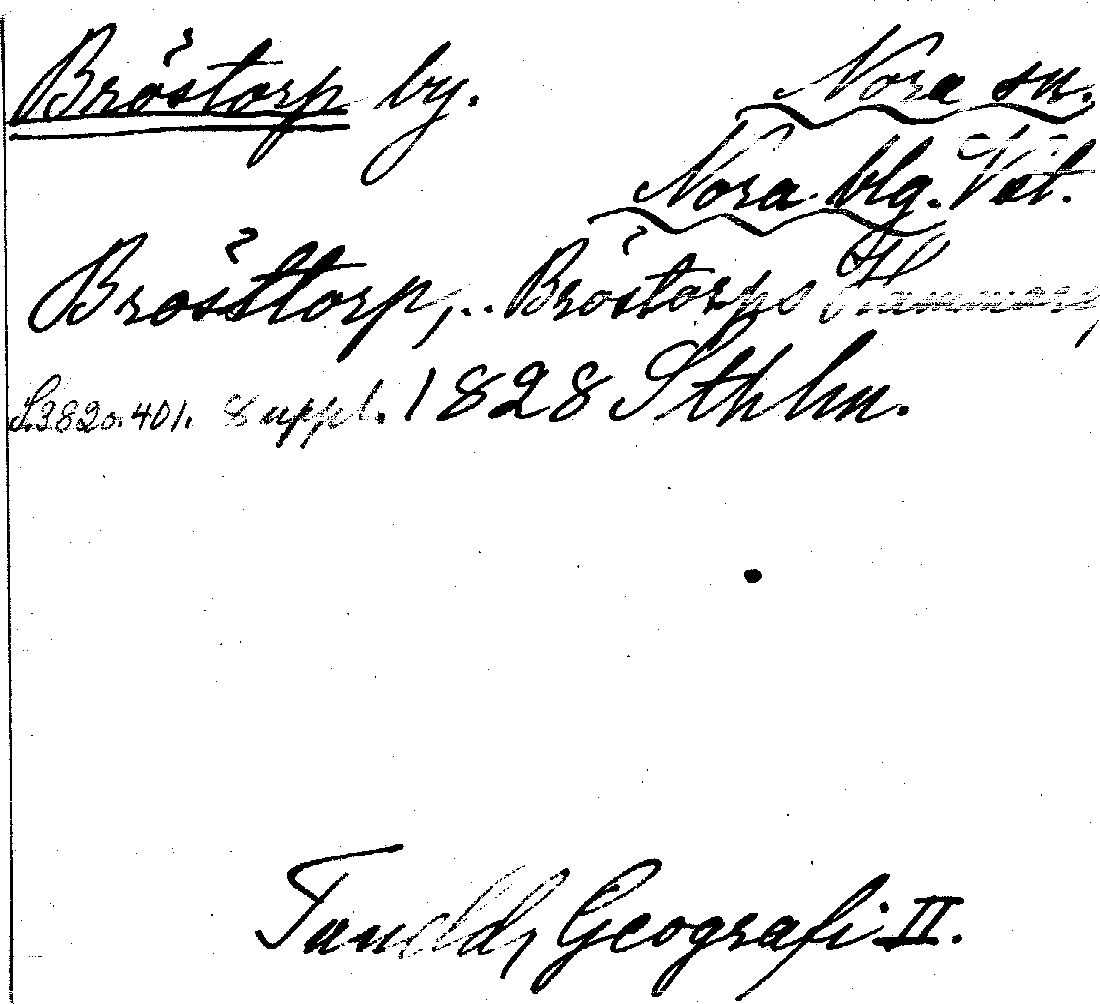 Bröstorp by. Nora sn.
Nora blg. Vstl.
Brösttorp,.. Bröstorps Hammare,
S.382 o. 401. Suppl. 1828 Sthlm.
Tuneld, Geografi II.